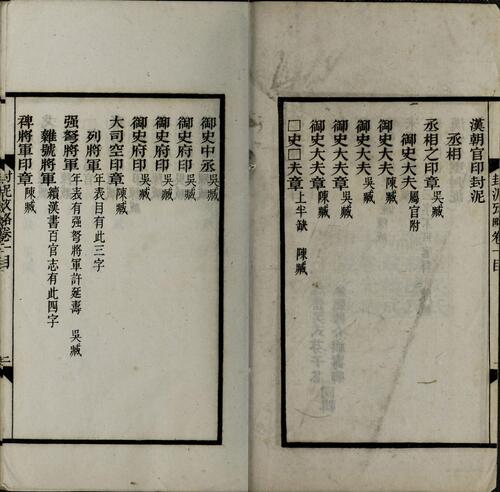 封泥攷略卷一目
漢朝官印封泥
丞相
丞相之印章 吳臧
御史大夫 屬官附
御史大夫 陳臧
御史大夫 吳臧
御史大夫章 吳臧
御史大夫章 陳臧
□史□夫章 上半缺 陳臧
御史中丞 吳臧
御史府印 吳臧
御史府印 吳臧
御史府印 吳臧
大司空印章 陳臧
列將軍 年表目有此三字
强弩將軍 年表有强弩將軍許延壽 吳臧
雜號將軍 續漢書百官志有此四字
裨將軍印章 陳臧
封泥攷略卷一目
二